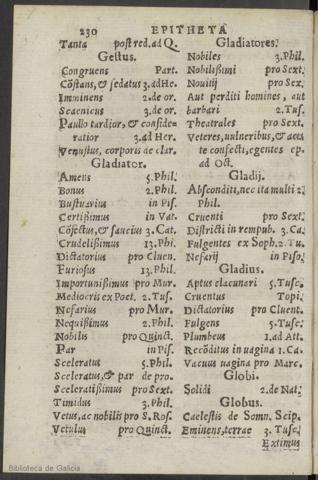 230 EPITHETA
Tanta post red. ad Q.
Gestus.
Congruens Part.
Cõstans, & sedatus 3. ad He.
Imminens 2. de or.
Scaenicus 3. de or.
Paullo tardior, & conside-
ratior 3. ad Her.
Venustus, corporis de clar.
Gladiator.
Amens 5. Phil.
Bonus 2. Phil.
Bustuarius in Pis.
Certißimus in Vat.
Cõfectus, & saucius 3. Cat.
Crudelißimus 13. Phi.
Dictatorius pro Cluen.
Furiosus 13. Phil.
Importunißimus pro Mur.
Mediocris ex Poet. 2. Tus.
Nefarius pro Mur.
Nequißimus 2. Phil.
Nobilis pro Quinct.
Par in Pis.
Sceleratus 5. Phil.
Sceleratus, & par de pro.
Sceleratißimus pro Sext.
Timidus 3. Phil.
Vetus, ac nobilis pro S. Ros.
Vetulus pro Quinct.
Gladiatores.
Nobiles 3. Phil.
Nobilißimi pro Sext.
Nouitij pro Sex.
Aut perditi homines, aut
barbari 2. Tus.
Theatrales pro Sext.
Veteres, vulneribus, & aeta
te confecti, egentes ep.
ad Oct.
Gladij.
Absconditi, nec ita multi 2.
Phil.
Cruenti pro Sext.
Districti in rempub. 3. Ca.
Fulgentes ex Soph. 2. Tu.
Nefarij in Piso.
Gladius.
Aptus e lacunari 5. Tusc.
Cruentus Topi.
Dictatorius pro Cluent.
Fulgens 5. Tusc.
Plumbeus 1. ad Att.
Recõditus in uagina 1. Ca.
Vacuus uagina pro Marc.
Globi.
Solidi 2. de Nat.
Globus.
Caelestis de Somn. Scip.
Eminens, terrae 3. Tusc.
Extimus
Biblioteca de Galicia